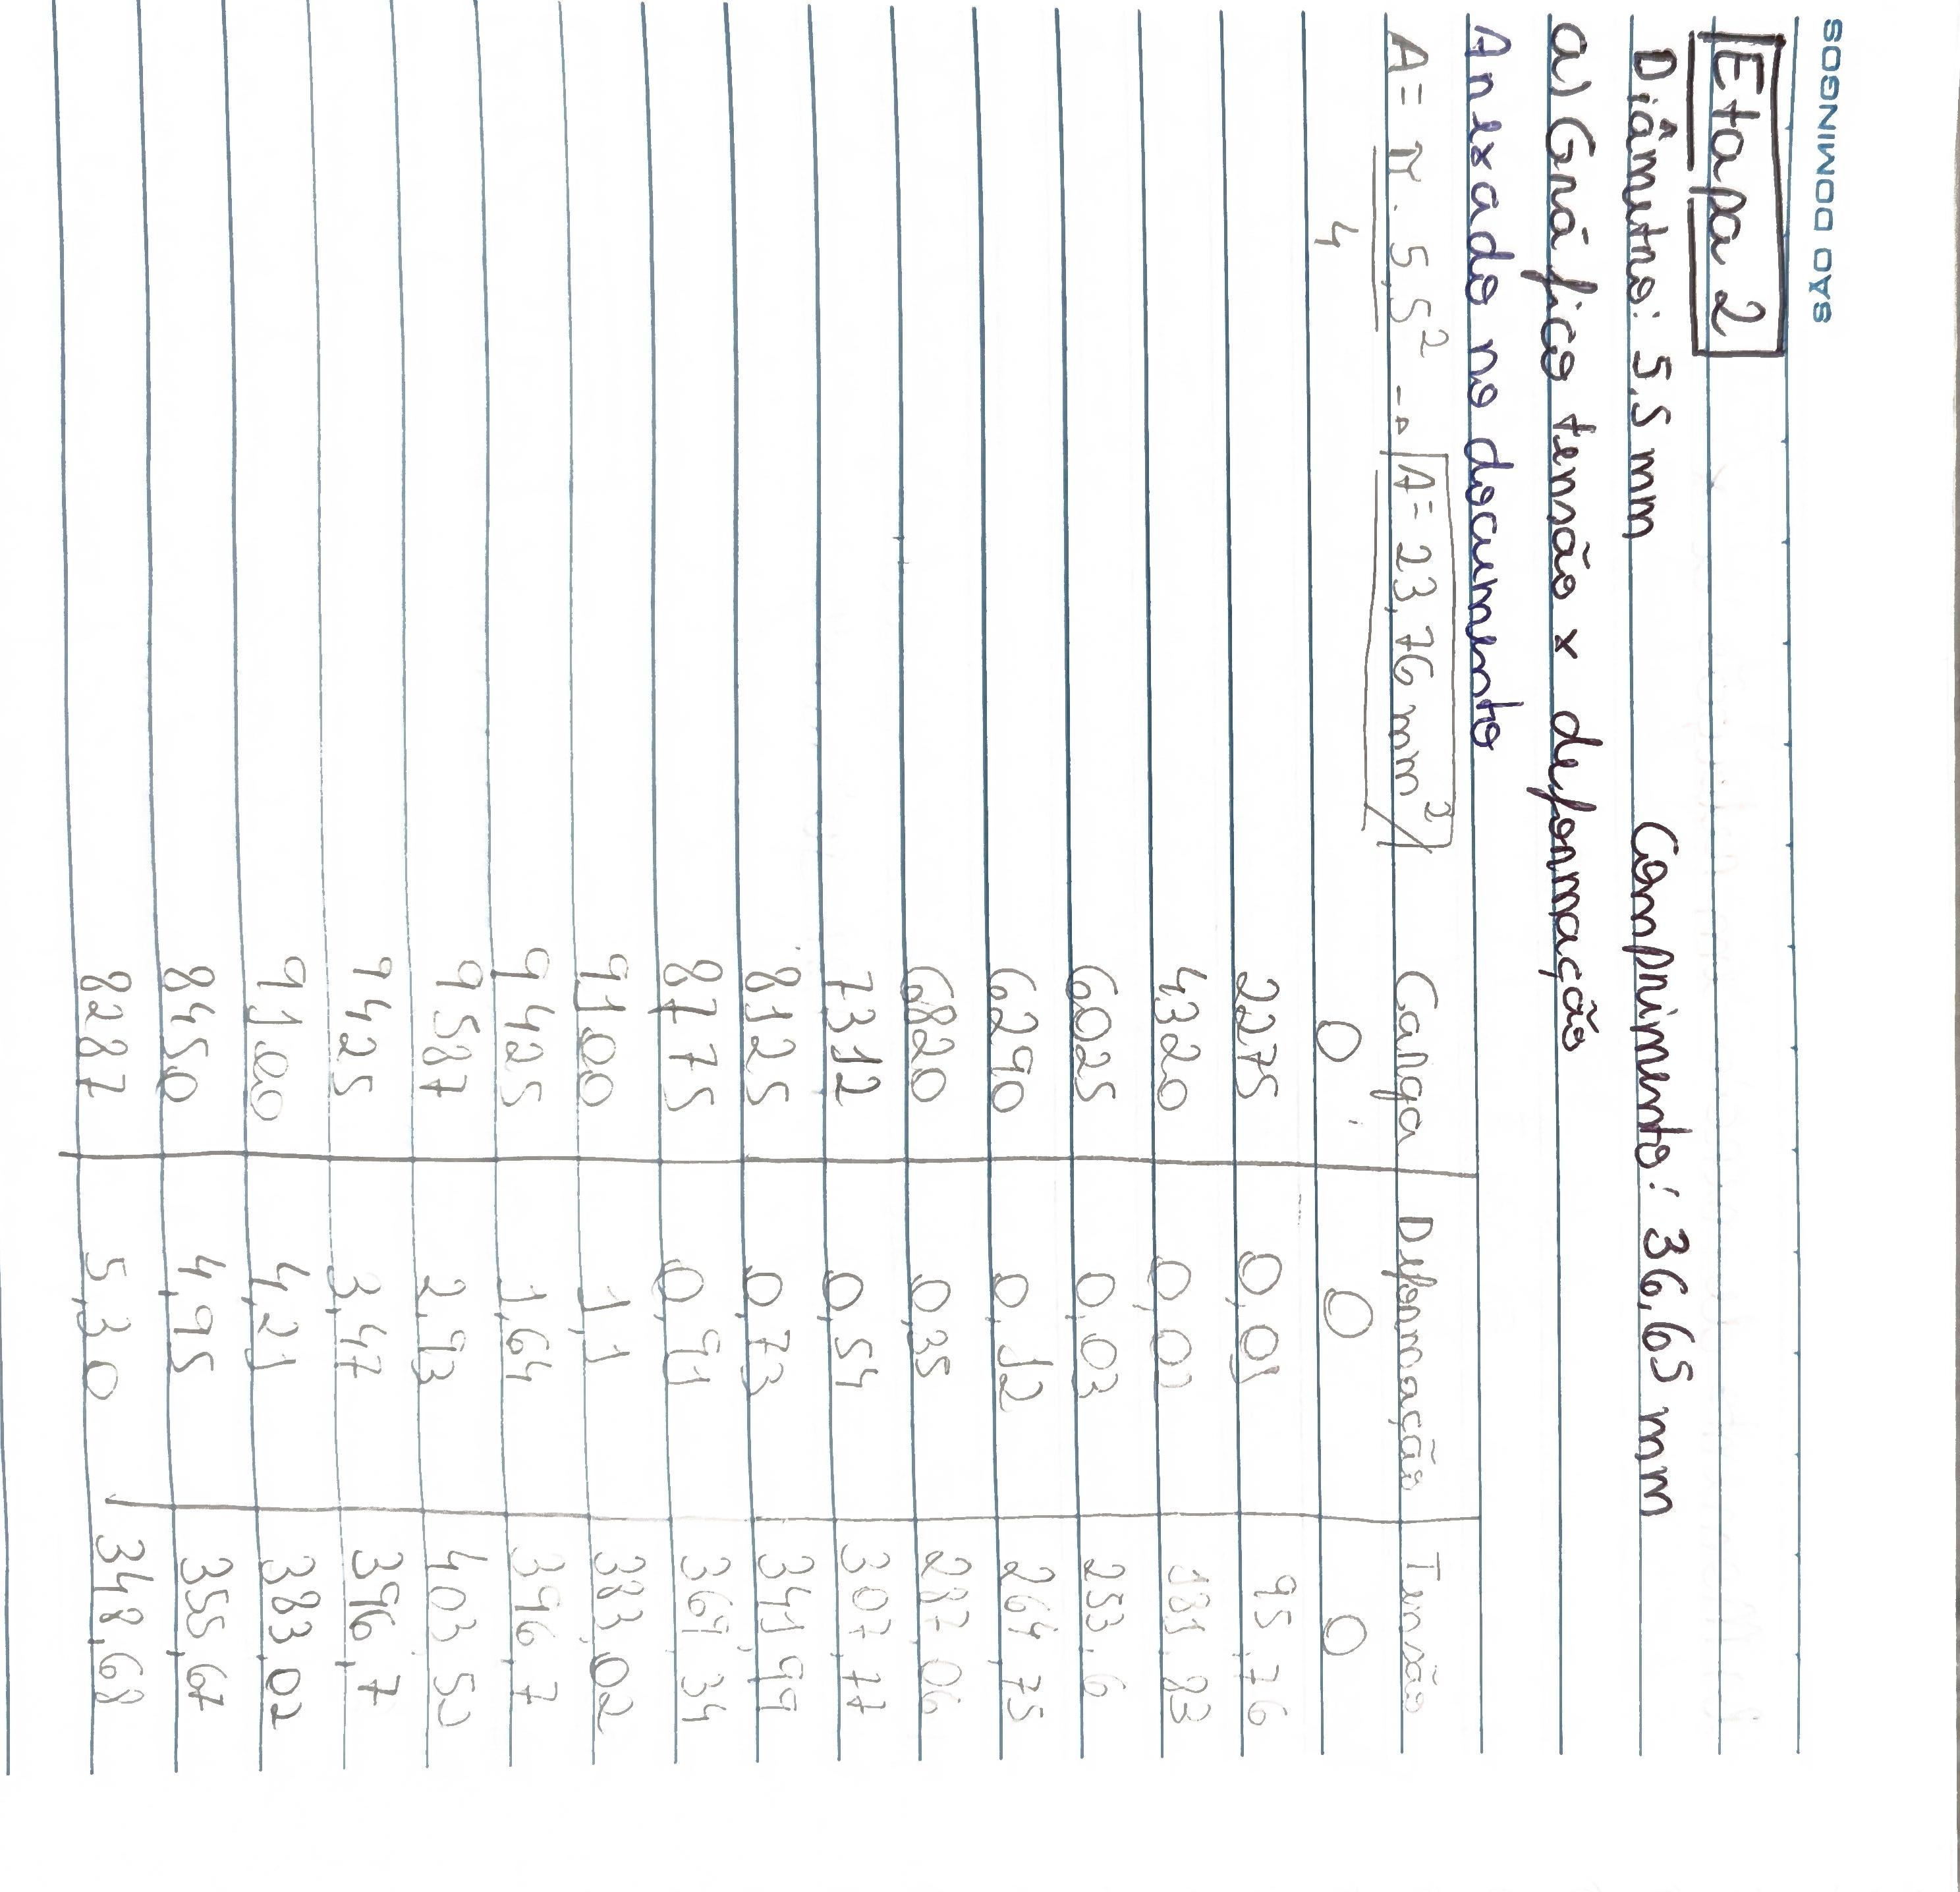 SÃO DOMINGOS
Etapa 2
Diâmetro: 5,5 mm Comprimento: 36,65 mm
a) Gráfico tensão x deformação
Anexado no documento
A = π . 5,5² → A = 23,76 mm³
4
Carga Deformação Tensão
0 0 0
2275 0,01 95,76
4320 0,01 181,83
6025 0,03 253,6
6290 0,12 264,75
6820 0,35 287,06
7312 0,54 307,77
8125 0,73 341,99
8775 0,91 369,34
9100 1,1 383,02
9425 1,64 396,7
9587 2,93 403,53
9425 3,47 396,7
9100 4,21 383,02
8450 4,95 355,67
8287 5,30 348,68